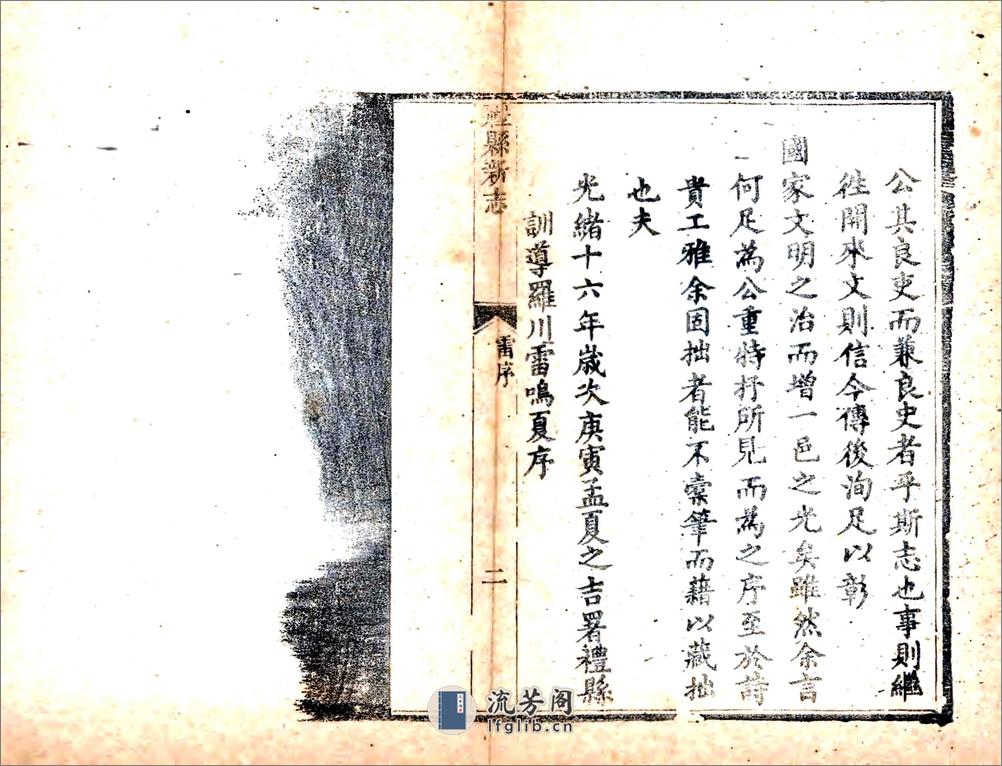 公其良吏而兼良史者乎斯志也事則繼
徃開來文則信今傳後洵足以彰
國家文明之治而增一邑之光矣雖然余言
何足為公重特抒所見而為之序至於詩
貴工雅余固拙者能不橐筆而藉以藏拙
也夫
光緒十六年歲次庚寅孟夏之吉署禮縣
訓導羅川雷鳴夏序
禮縣新志
雷序
二
流芳阁
lfglib.cn